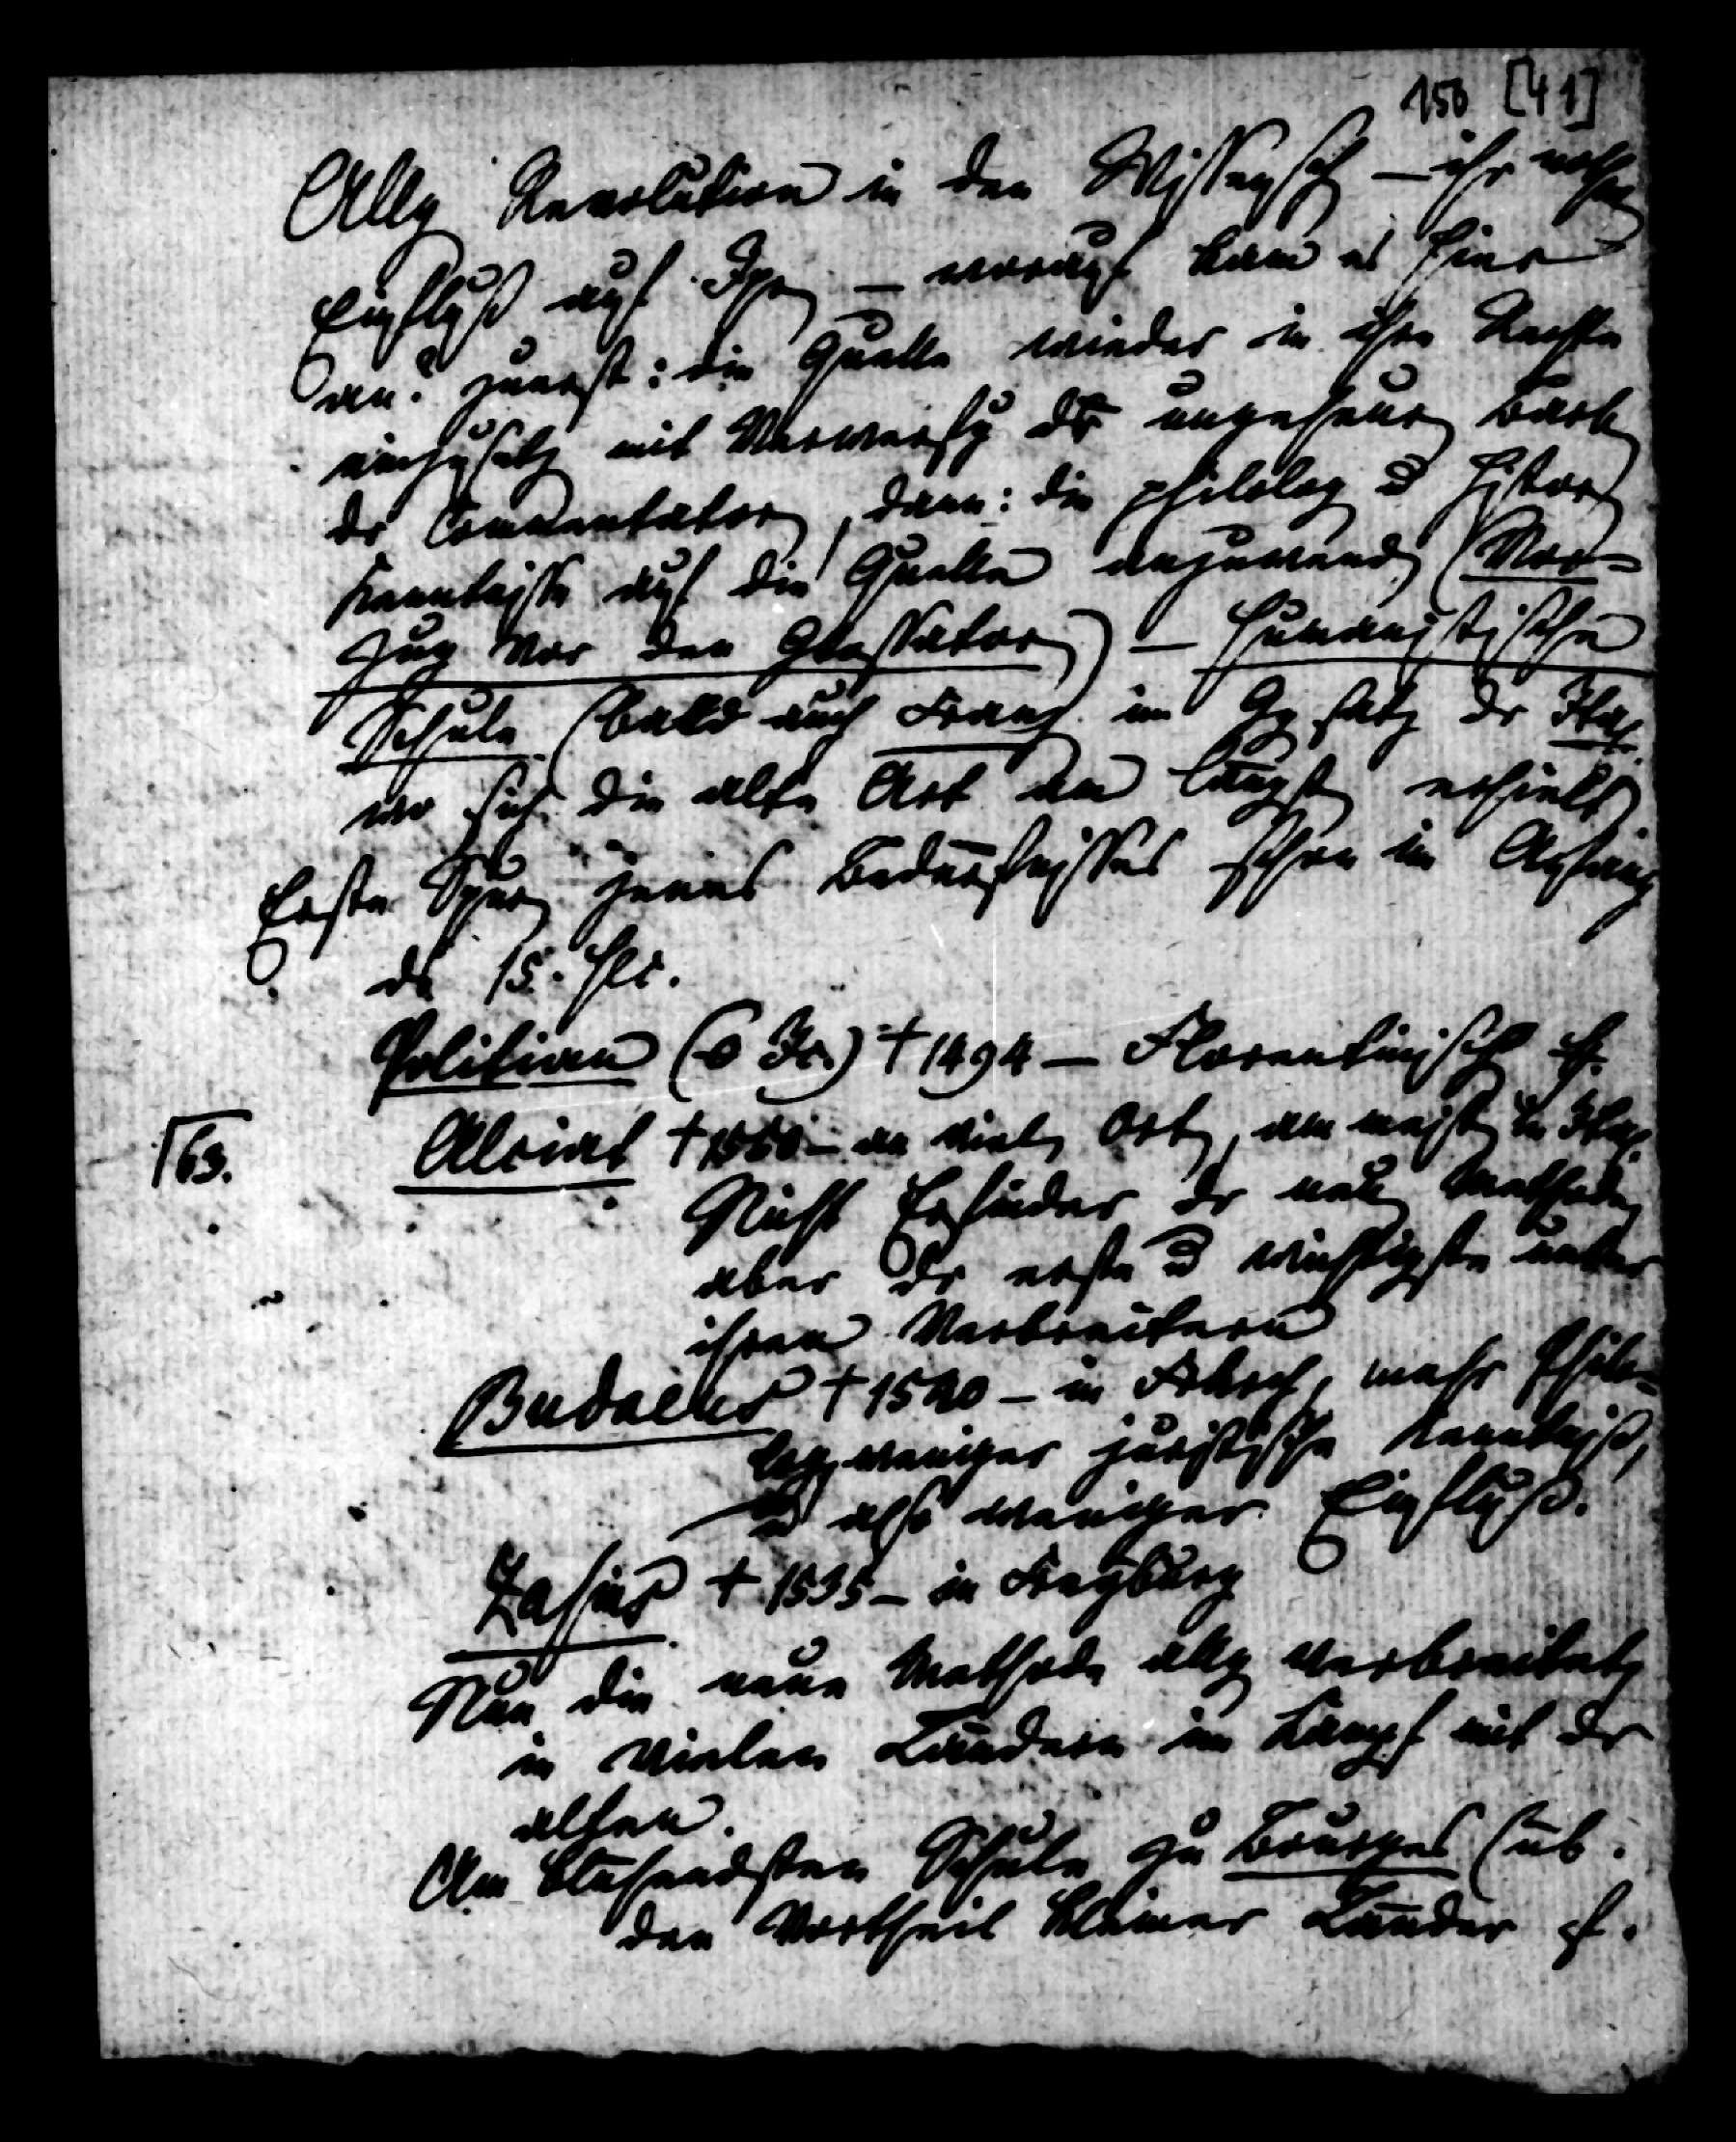 150 [41]
Allg Revolution in den Wissensch – ihr nothw
Einfluß auf Jpr – worauf kam es hier
an? zuerst: die Quellen wieder in ihre Rechte
einzusetz mit Verwerfg der ungeheur
der Commentator, dann: die philolog u histor
Kenntnisse auf die Quellen anzuwend (Vor-
zug vor den Glossator) – humanistische
Schule (bald auch Franz. im Ggsatz der Ital.
wo sich die alte Art am längst erhielt)
Erste Spur jenes Bedürfnisses schon im Anfang
des 15. Sec.
Politian (0 Jc.) † 1494 – Florentinisch
63. Alciat † 1550 – an viel Ort, am meist in Ital.
Nicht Erfinder der neu Methode
aber der erste u wichtigste unter
ihren Verbreitern
Budaeus † 1540 – in Frkrch, mehr philo-
log weniger juristische Kenntniß,
u also weniger Einfluß.
Zasius † 1535 – in Freyburg
Nun die neue Methode allg verbreitet
in vielen Ländern im Kampf mit der
alten.
Am blühendsten Schule zu Bourges (üb.
den Vortheil kleiner Länder